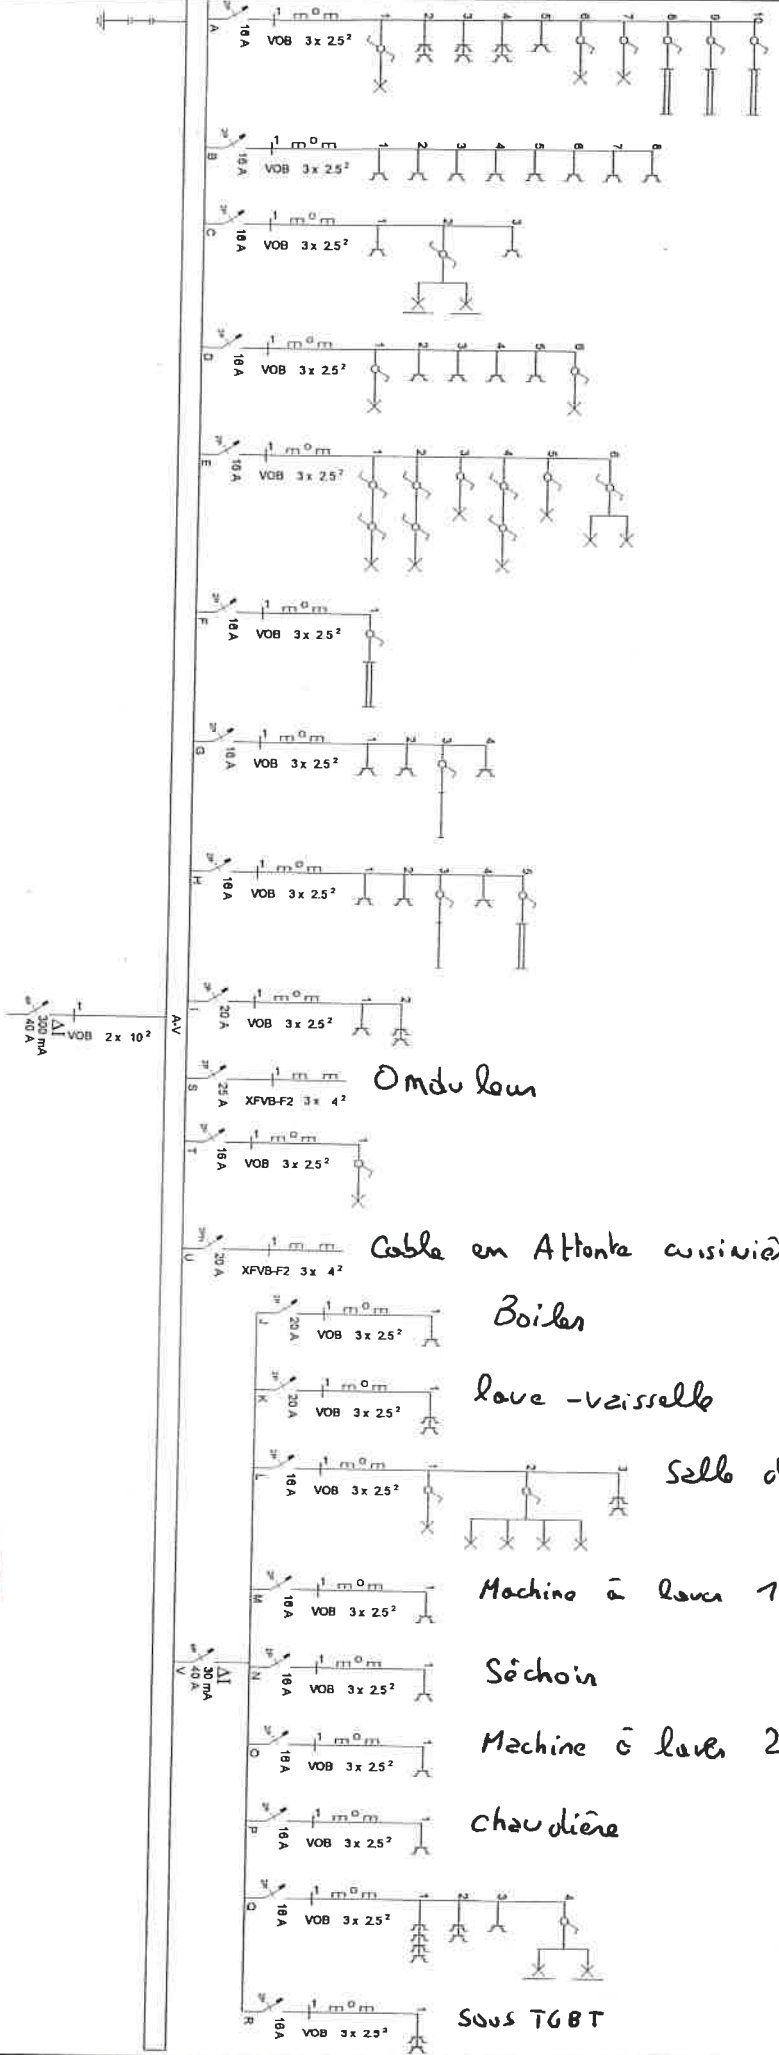 A 16 A 1 VOB 3 x 2.5² 1 2 3 4 5 6 7 8 9 10
B 16 A 1 VOB 3 x 2.5² 1 2 3 4 5 6 7 8
C 16 A 1 VOB 3 x 2.5² 1 2 3
D 16 A 1 VOB 3 x 2.5² 1 2 3 4 5 6
E 16 A 1 VOB 3 x 2.5² 1 2 3 4 5 6
F 16 A 1 VOB 3 x 2.5² 1
G 16 A 1 VOB 3 x 2.5² 1 2 3 4
H 16 A 1 VOB 3 x 2.5² 1 2 3 4 5
300 mA 40 A ΔI 1 VOB 2 x 10² A-V
I 20 A 1 VOB 3 x 2.5² 1 2
S 25 A 1 XFVB-F2 3 x 4² Onduleur
T 16 A 1 VOB 3 x 2.5² 1
U 20 A 1 XFVB-F2 3 x 4² Cable en Attente cuisiniè
J 20 A 1 VOB 3 x 2.5² 1 Boiler
K 20 A 1 VOB 3 x 2.5² 1 lave-vaisselle
L 16 A 1 VOB 3 x 2.5² 1 2 3 Salle d
M 16 A 1 VOB 3 x 2.5² 1 Machine à laver 1
V 30 mA 40 A ΔI
N 16 A 1 VOB 3 x 2.5² 1 Séchoir
O 16 A 1 VOB 3 x 2.5² 1 Machine à laver 2
P 16 A 1 VOB 3 x 2.5² 1 chaudière
Q 16 A 1 VOB 3 x 2.5² 1 2 3 4
R 16 A 1 VOB 3 x 2.5² 1 Sous TGBT